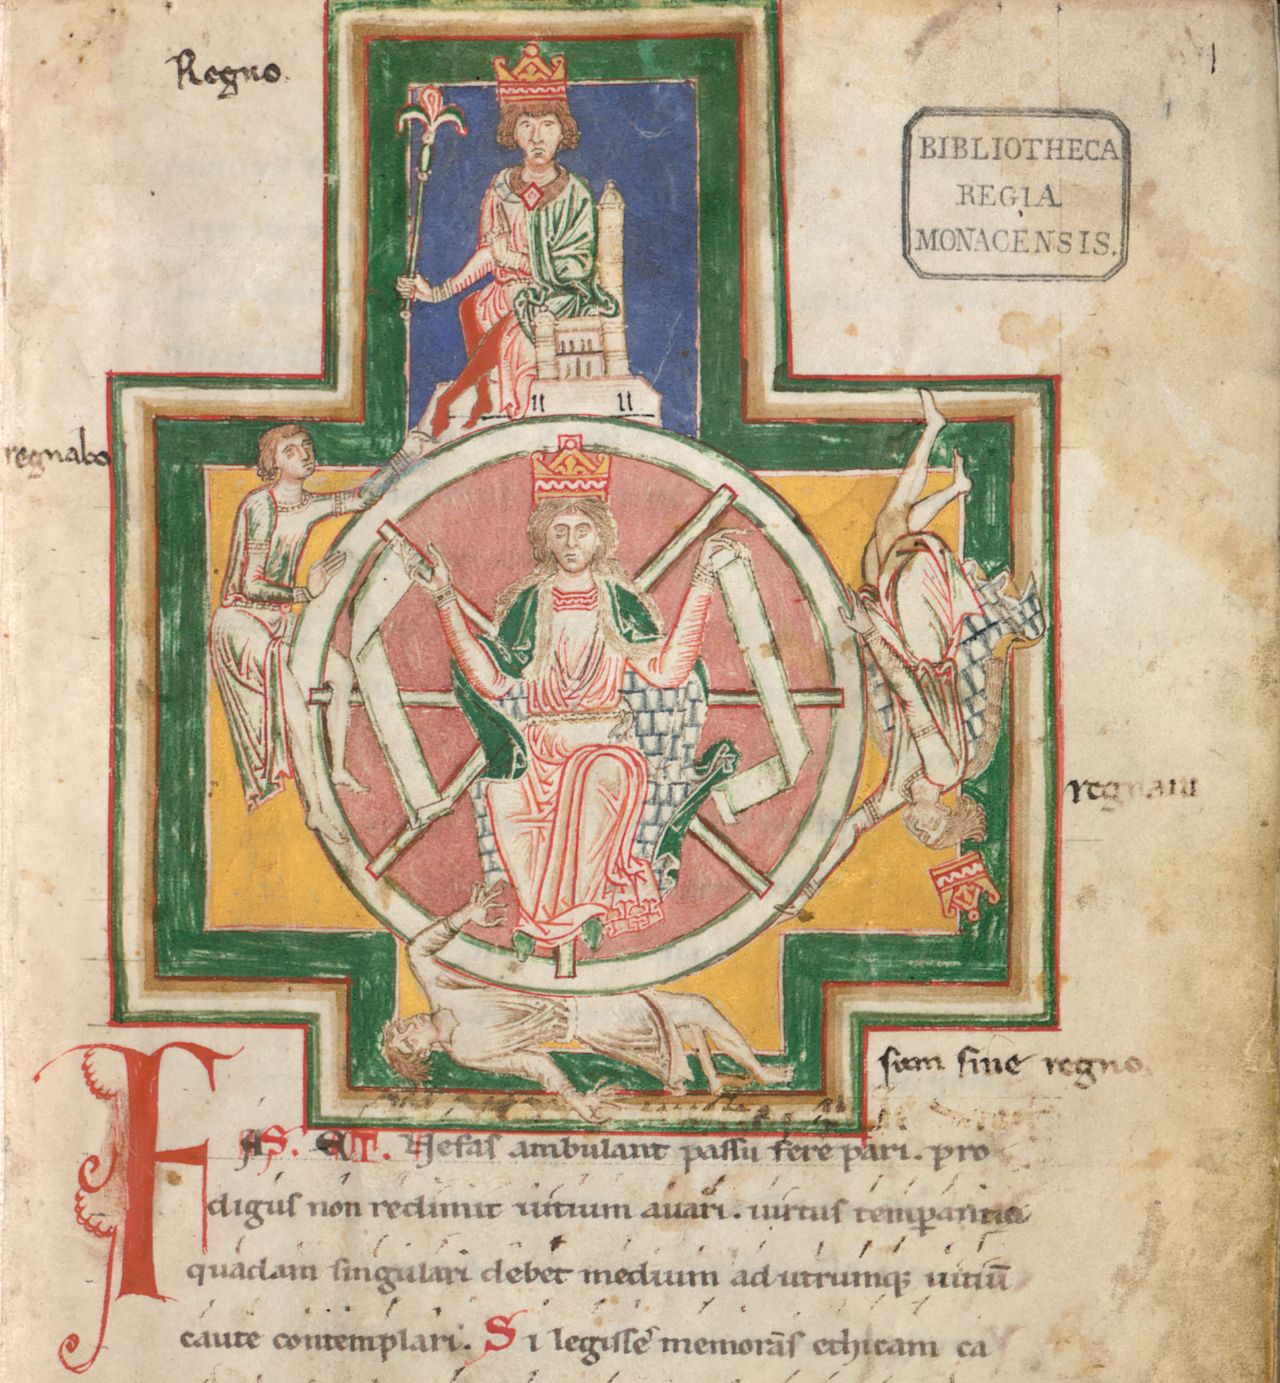 Regno.
1
BIBLIOTHECA
REGIA
MONACENSIS.
regnabo
regnaui
sum sine regno.
FAS. ET. Nefas ambulant passu fere pari. pro
digus non redimit uitium auari. uirtus temperantia
quadam singulari debet medium ad utrumq; uitiū
caute contemplari. Si legisse memorās ethicam ca